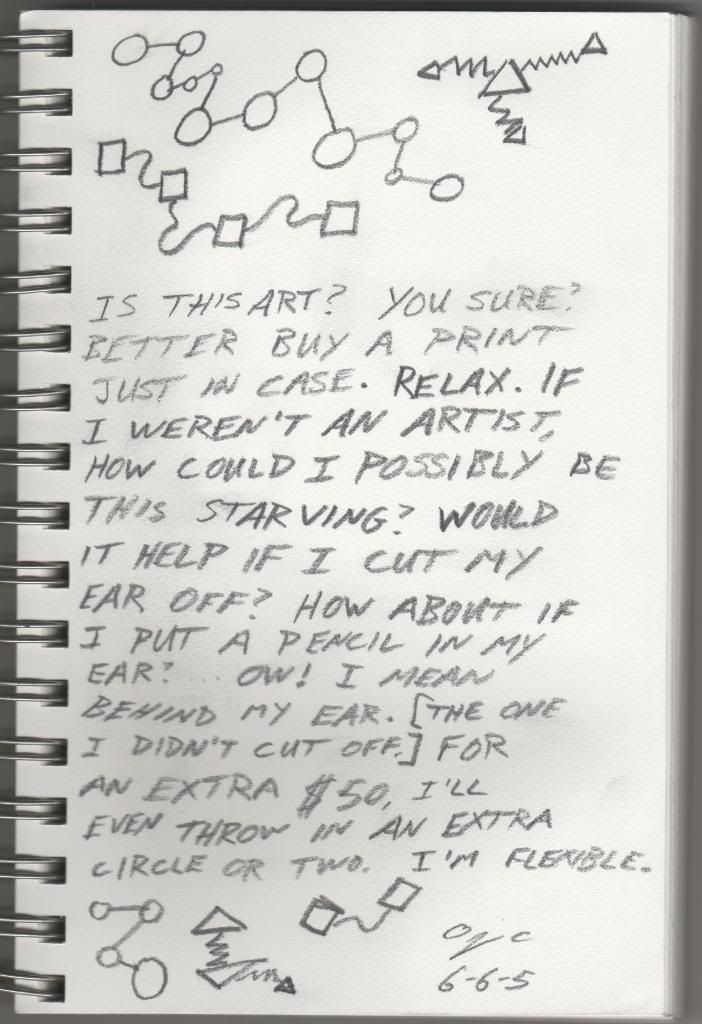 IS THIS ART? YOU SURE?
BETTER BUY A PRINT
JUST IN CASE. RELAX. IF
I WEREN'T AN ARTIST,
HOW COULD I POSSIBLY BE
THIS STARVING? WOULD
IT HELP IF I CUT MY
EAR OFF? HOW ABOUT IF
I PUT A PENCIL IN MY
EAR? OW! I MEAN
BEHIND MY EAR. [THE ONE
I DIDN'T CUT OFF.] FOR
AN EXTRA $50, I'LL
EVEN THROW IN AN EXTRA
CIRCLE OR TWO. I'M FLEXIBLE.
6-6-5